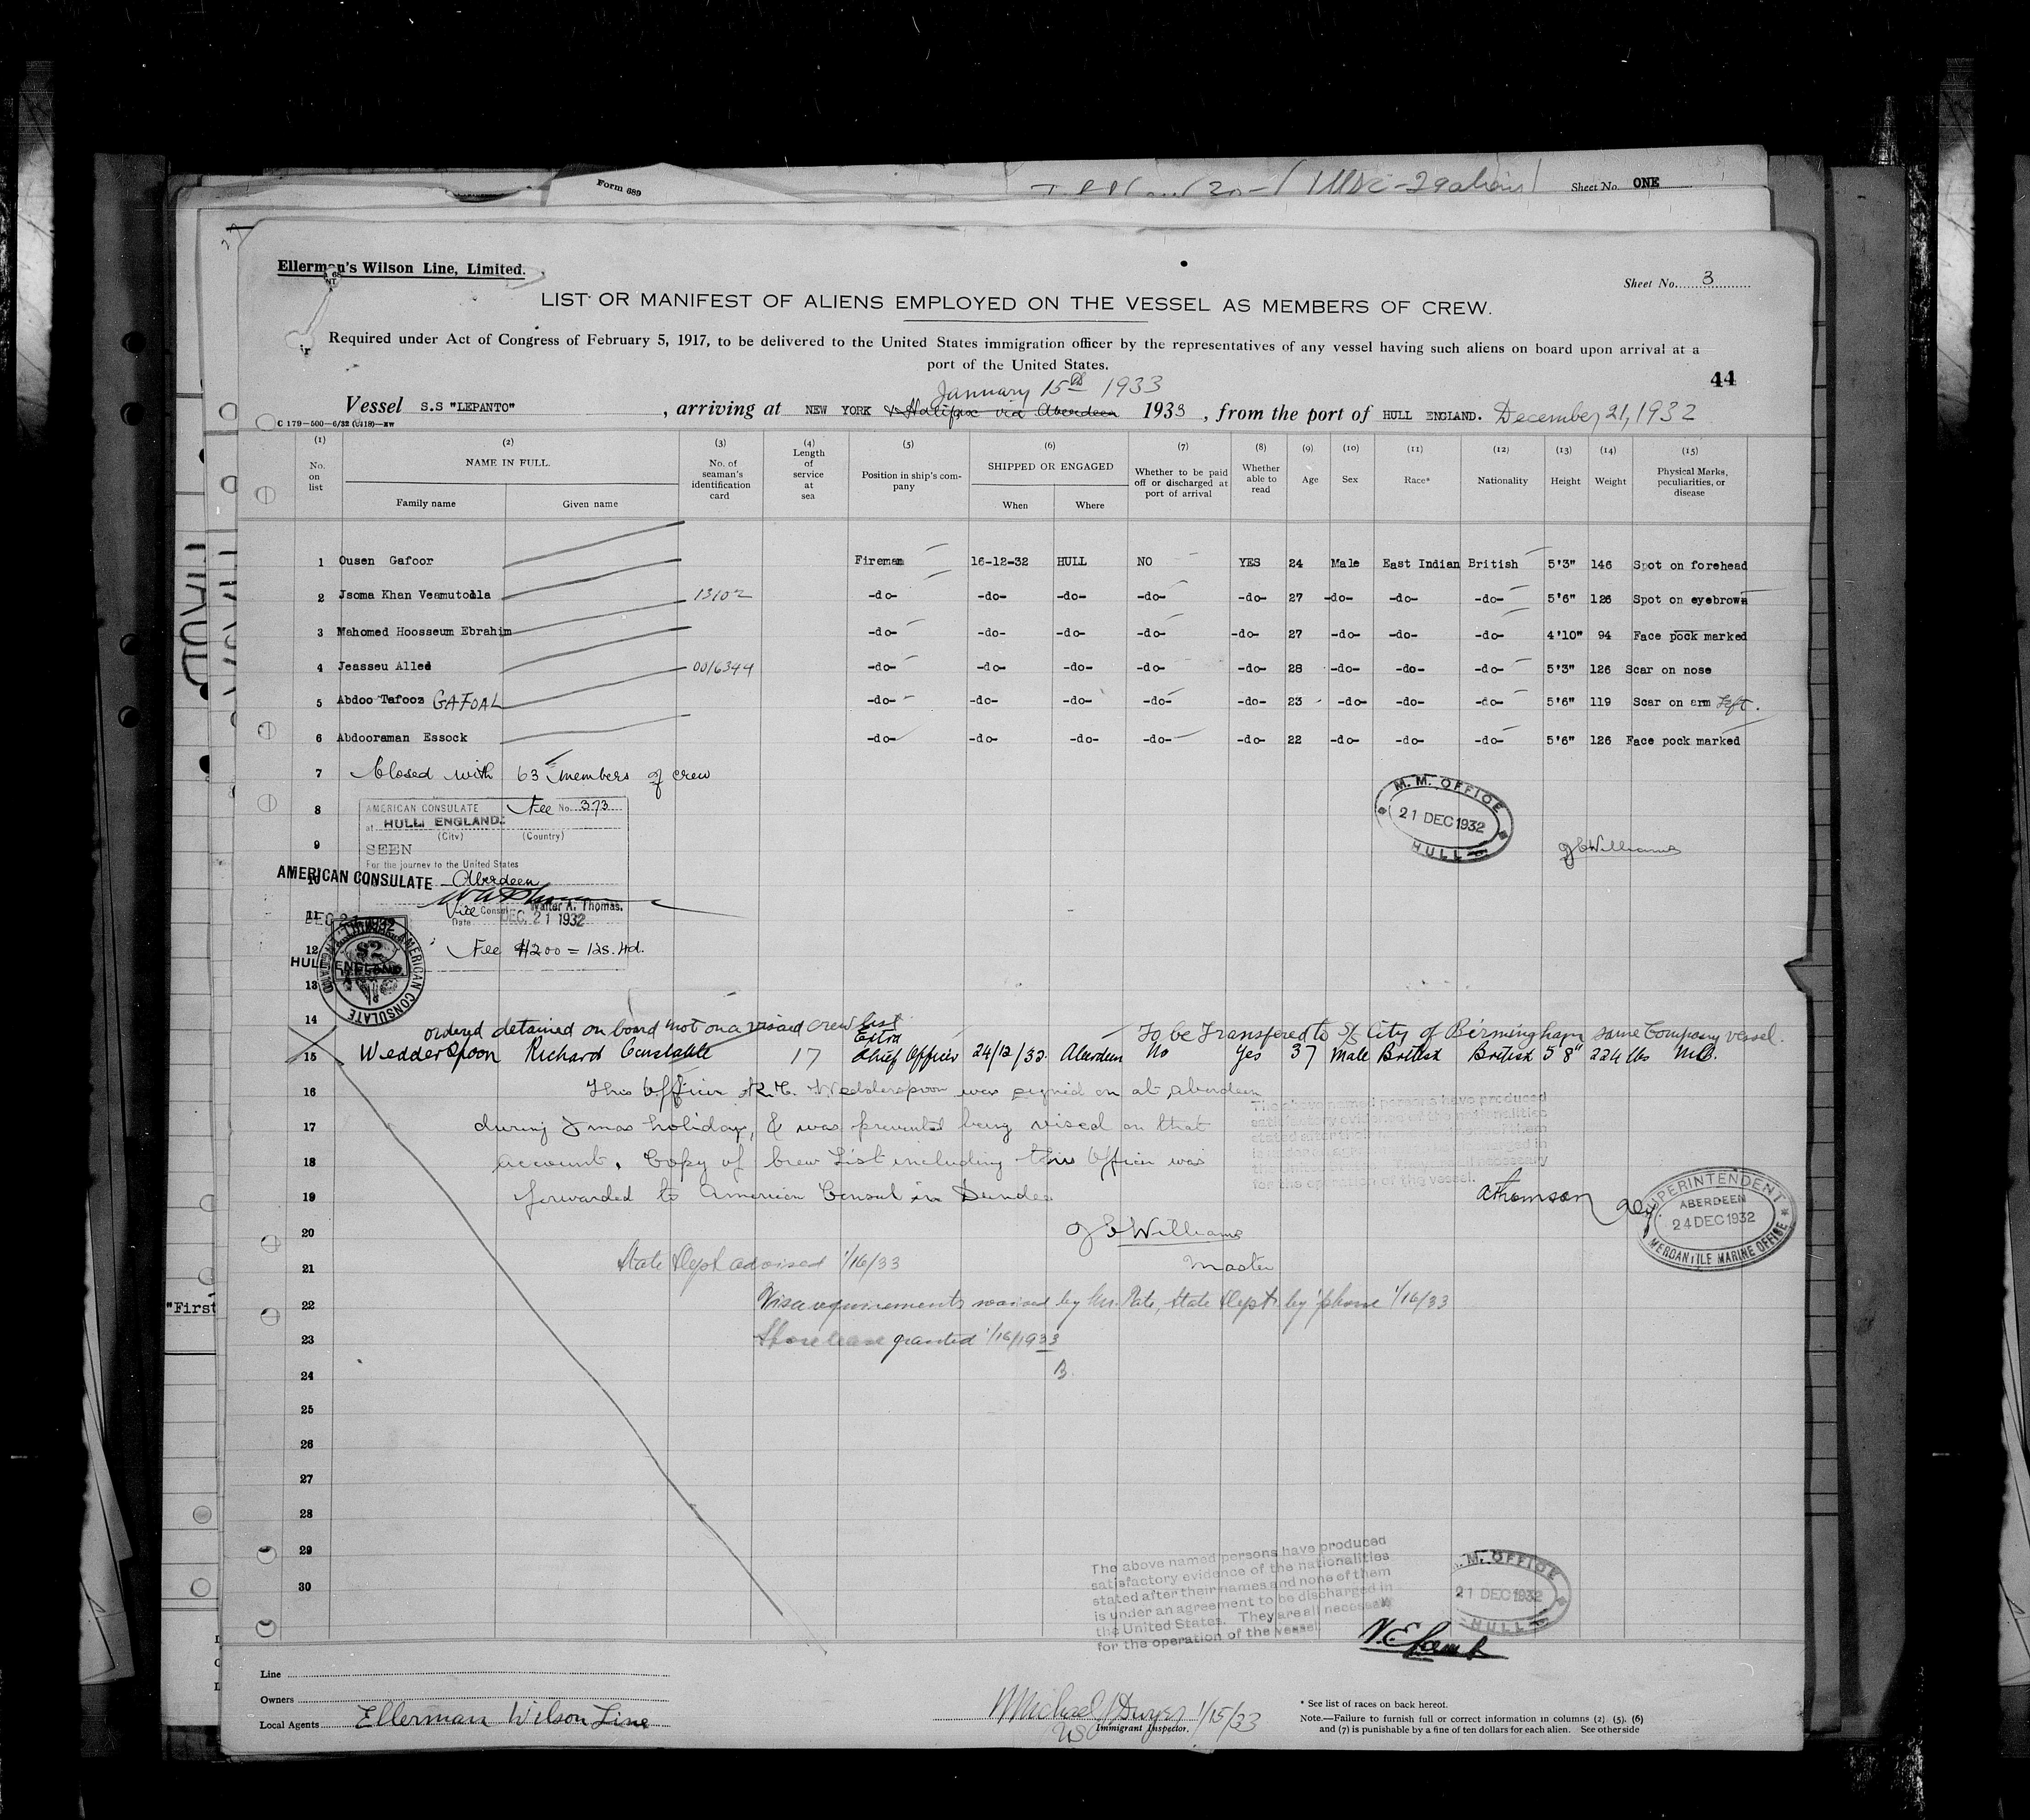 Form 689
Sheet No. ONE
Ellerman's Wilson Line, Limited.
Sheet No. 3
LIST OR MANIFEST OF ALIENS EMPLOYED ON THE VESSEL AS MEMBERS OF CREW.
Required under Act of Congress of February 5, 1917, to be delivered to the United States immigration officer by the representatives of any vessel having such aliens on board upon arrival at a
port of the United States.
44
January 15th 1933
Vessel S.S "LEPANTO", arriving at NEW YORK & Halifax via Aberdeen 1933, from the port of HULL ENGLAND. December 21, 1932
C 179-500-6/32
(1) (2) (3) (4) (5) (6) (7) (8) (9) (10) (11) (12) (13) (14) (15)
No. on list NAME IN FULL. Family name Given name No. of seaman's identification card Length of service at sea Position in ship's company SHIPPED OR ENGAGED When Where Whether to be paid off or discharged at port of arrival Whether able to read Age Sex Race* Nationality Height Weight Physical Marks, peculiarities, or disease
1 Ousen Gafoor Fireman 16-12-32 HULL NO YES 24 Male East Indian British 5'3" 146 Spot on forehead
2 Jsoma Khan Veamutolla 13102 -do- -do- -do- -do- -do- 27 -do- -do- -do- 5'6" 126 Spot on eyebrown
3 Mahomed Hoosseum Ebrahim -do- -do- -do- -do- -do- 27 -do- -do- -do- 4'10" 94 Face pock marked
4 Jeasseu Alled 0016344 -do- -do- -do- -do- -do- 28 -do- -do- -do- 5'3" 126 Scar on nose
5 Abdoo Tafooz GAFOAL -do- -do- -do- -do- -do- 23 -do- -do- -do- 5'6" 119 Scar on arm Left.
6 Abdooraman Essock -do- -do- -do- -do- -do- 22 -do- -do- -do- 5'6" 126 Face pock marked
7 Closed with 63 members of crew
8 AMERICAN CONSULATE Fee No. 373
at HULL ENGLAND.
(City) (Country)
M. M. OFFICE
21 DEC 1932
HULL
9 SEEN
J C Williams
For the journey to the United States
10 AMERICAN CONSULATE Aberdeen
11 Vice Consul Walter A. Thomas.
Date DEC. 21 1932
12 Fee $2.00 = 12s. 4d.
HULL ENGLAND
AMERICAN CONSULATE
13
14 ordered detained on board not on a visaed crew list To be Transfered to S/S City of Birmingham same Company vessel.
15 Wedderspoon Richard Constable 17 Extra Chief Officer 24/12/32 Aberdeen No Yes 37 Male British British 5 8" 224 lbs
16 This Officer R.C. Wedderspoon was signed on at Aberdeen
17 during Xmas holidays, & was prevented being vised on that
18 account. Copy of Crew List including this Officer was
19 forwarded to American Consul in Dundee
The above named persons have produced
satisfactory evidence of the nationalities
stated after their names and none of them
for the operation of the vessel.
AThomson
SUPERINTENDENT
ABERDEEN
24 DEC 1932
MERCANTILE MARINE OFFICE
20 J C Williams
21 State Dept advised 1/16/33 Master
22 Visa requirements waived by Mr. Pate, State Dept. by 'phone 1/16/33
23 Shore leave granted 1/16/1933
24 B
25
26
27
28
29
30
"First
The above named persons have produced
satisfactory evidence of the nationalities
stated after their names and none of them
is under an agreement to be discharged in
the United States. They are all necessary
for the operation of the vessel.
M. OFFICE
21 DEC 1932
HULL
Line
Owners
Local Agents Ellerman Wilson Line
Michael J Dwyer 1/15/33
Immigrant Inspector.
* See list of races on back hereof.
Note.—Failure to furnish full or correct information in columns (2) (5), (6)
and (7) is punishable by a fine of ten dollars for each alien. See other side